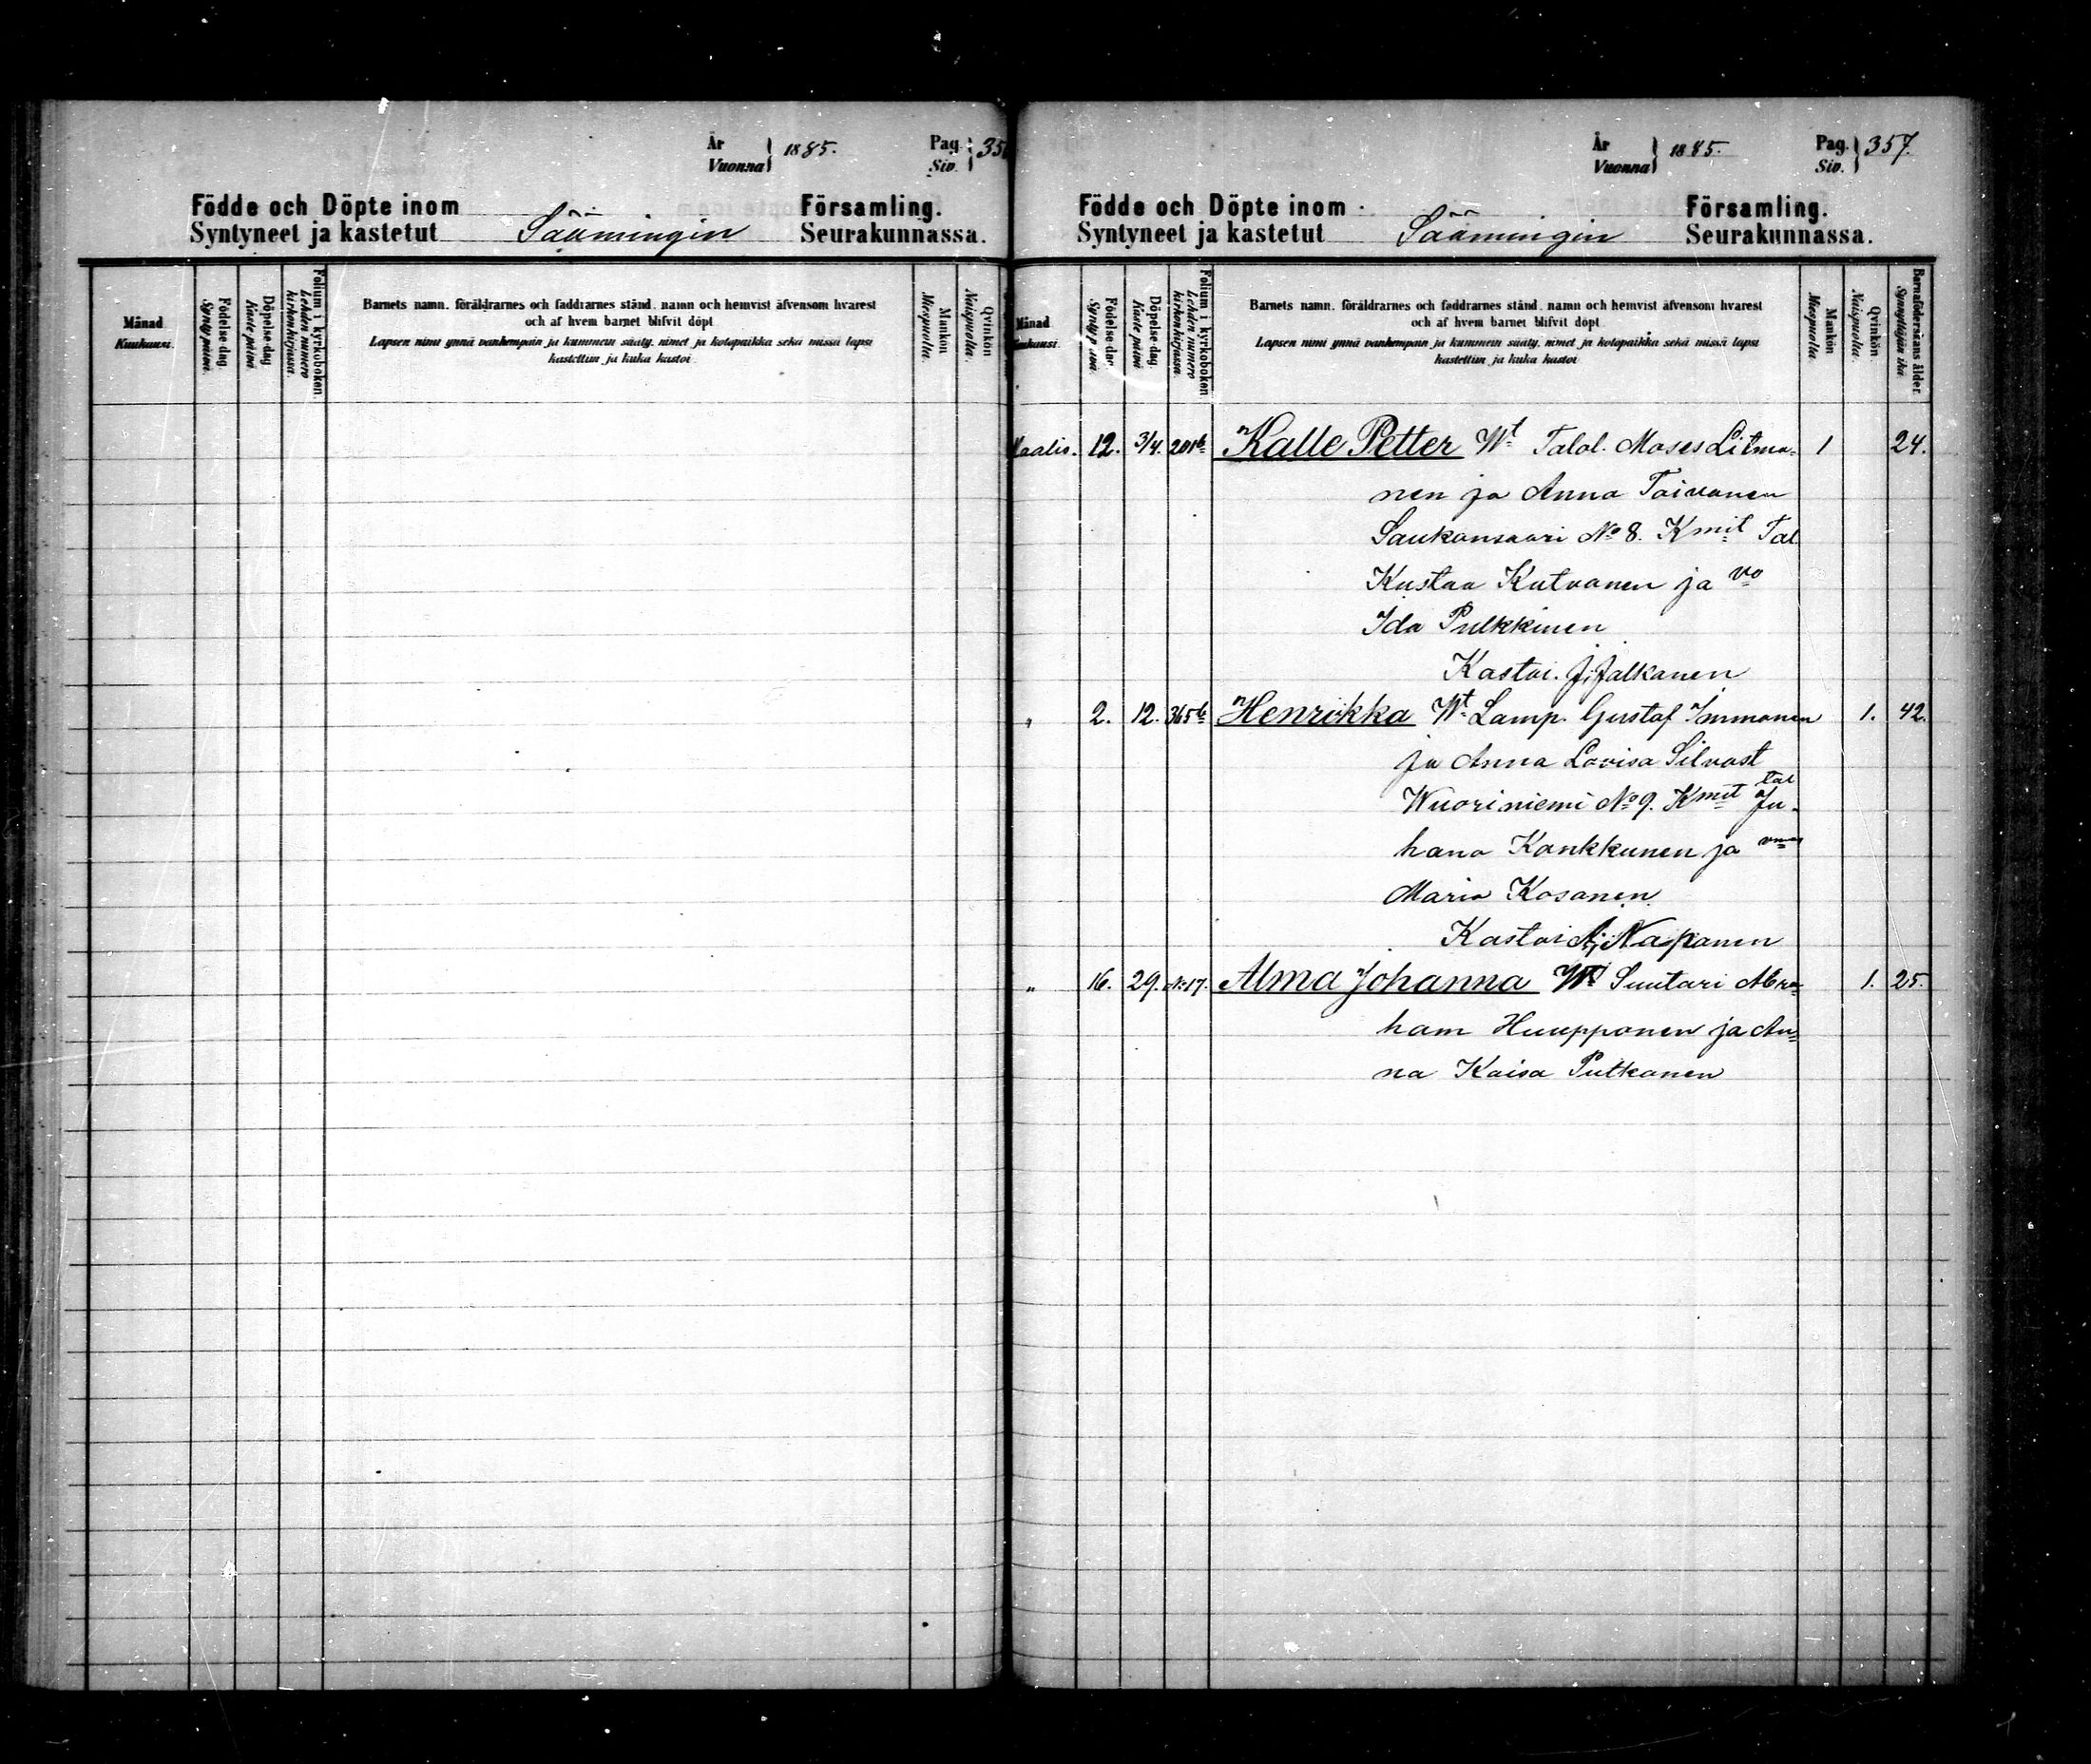 År
Vuonna } 1885.
Pag.
Siv. } 35
Födde och Döpte inom Församling.
Syntyneet ja kastetut Säämingin Seurakunnassa.
Månad
Kuukausi.
Födelse-dag.
Syntypäivä.
Döpelse-dag.
Kaste päivä
Folium i kyrkoboken.
Lehden numero kirkonkirjassa.
Barnets namn, föräldrarnes och faddrarnes stånd, namn och hemvist äfvensom hvarest
och af hvem barnet blifvit döpt
Lapsen nimi ynnä vanhempain ja kummein sääty, nimet ja kotopaikka sekä missä lapsi
kastettiin ja kuka kastoi.
Mankön
Miespuolia.
Qvinkön
Naispuolia.
År
Vuonna } 1885.
Pag.
Siv. } 357.
Födde och Döpte inom Församling.
Syntyneet ja kastetut Säämingin Seurakunnassa.
Månad
Kuukausi.
Födelse-dag.
Syntypäivä.
Döpelse-dag.
Kaste päivä
Folium i kyrkoboken
Lehden numero kirkonkirjassa.
Barnets namn, föräldrarnes och faddrarnes stånd, namn och hemvist äfvensom hvarest
och af hvem barnet blifvit döpt
Lapsen nimi ynnä vanhempain ja kummein sääty, nimet ja kotopaikka sekä missä lapsi
kastettiin ja kuka kastoi
Mankön
Miespuolia.
Qvinkön
Naispuolia.
Barnaföderskans ålder
Synnyttäjän ikä.
Maalis. 12. 3/4. 201b Kalle Petter Wt Talol. Moses Litma- 1 24.
nen ja Anna Toivanen
Saukonsaari No 8. Kmit Tal.
Kustaa Kutvonen ja vo
Ida Pulkkinen
Kastoi. J. Jalkanen
" 2. 12. 365b Henrikka Wt Lamp. Gustaf Immonen 1. 42.
ja Anna Lovisa Silvast
Wuoriniemi No 9. Kmit tal Ju-
hana Kankkunen ja
Maria Kosonen
Kastoi Naskanen
" 16. 29. No 17. Alma Johanna Wt Suutari Abra- 1. 25.
ham Huupponen ja An-
na Kaisa Putkonen